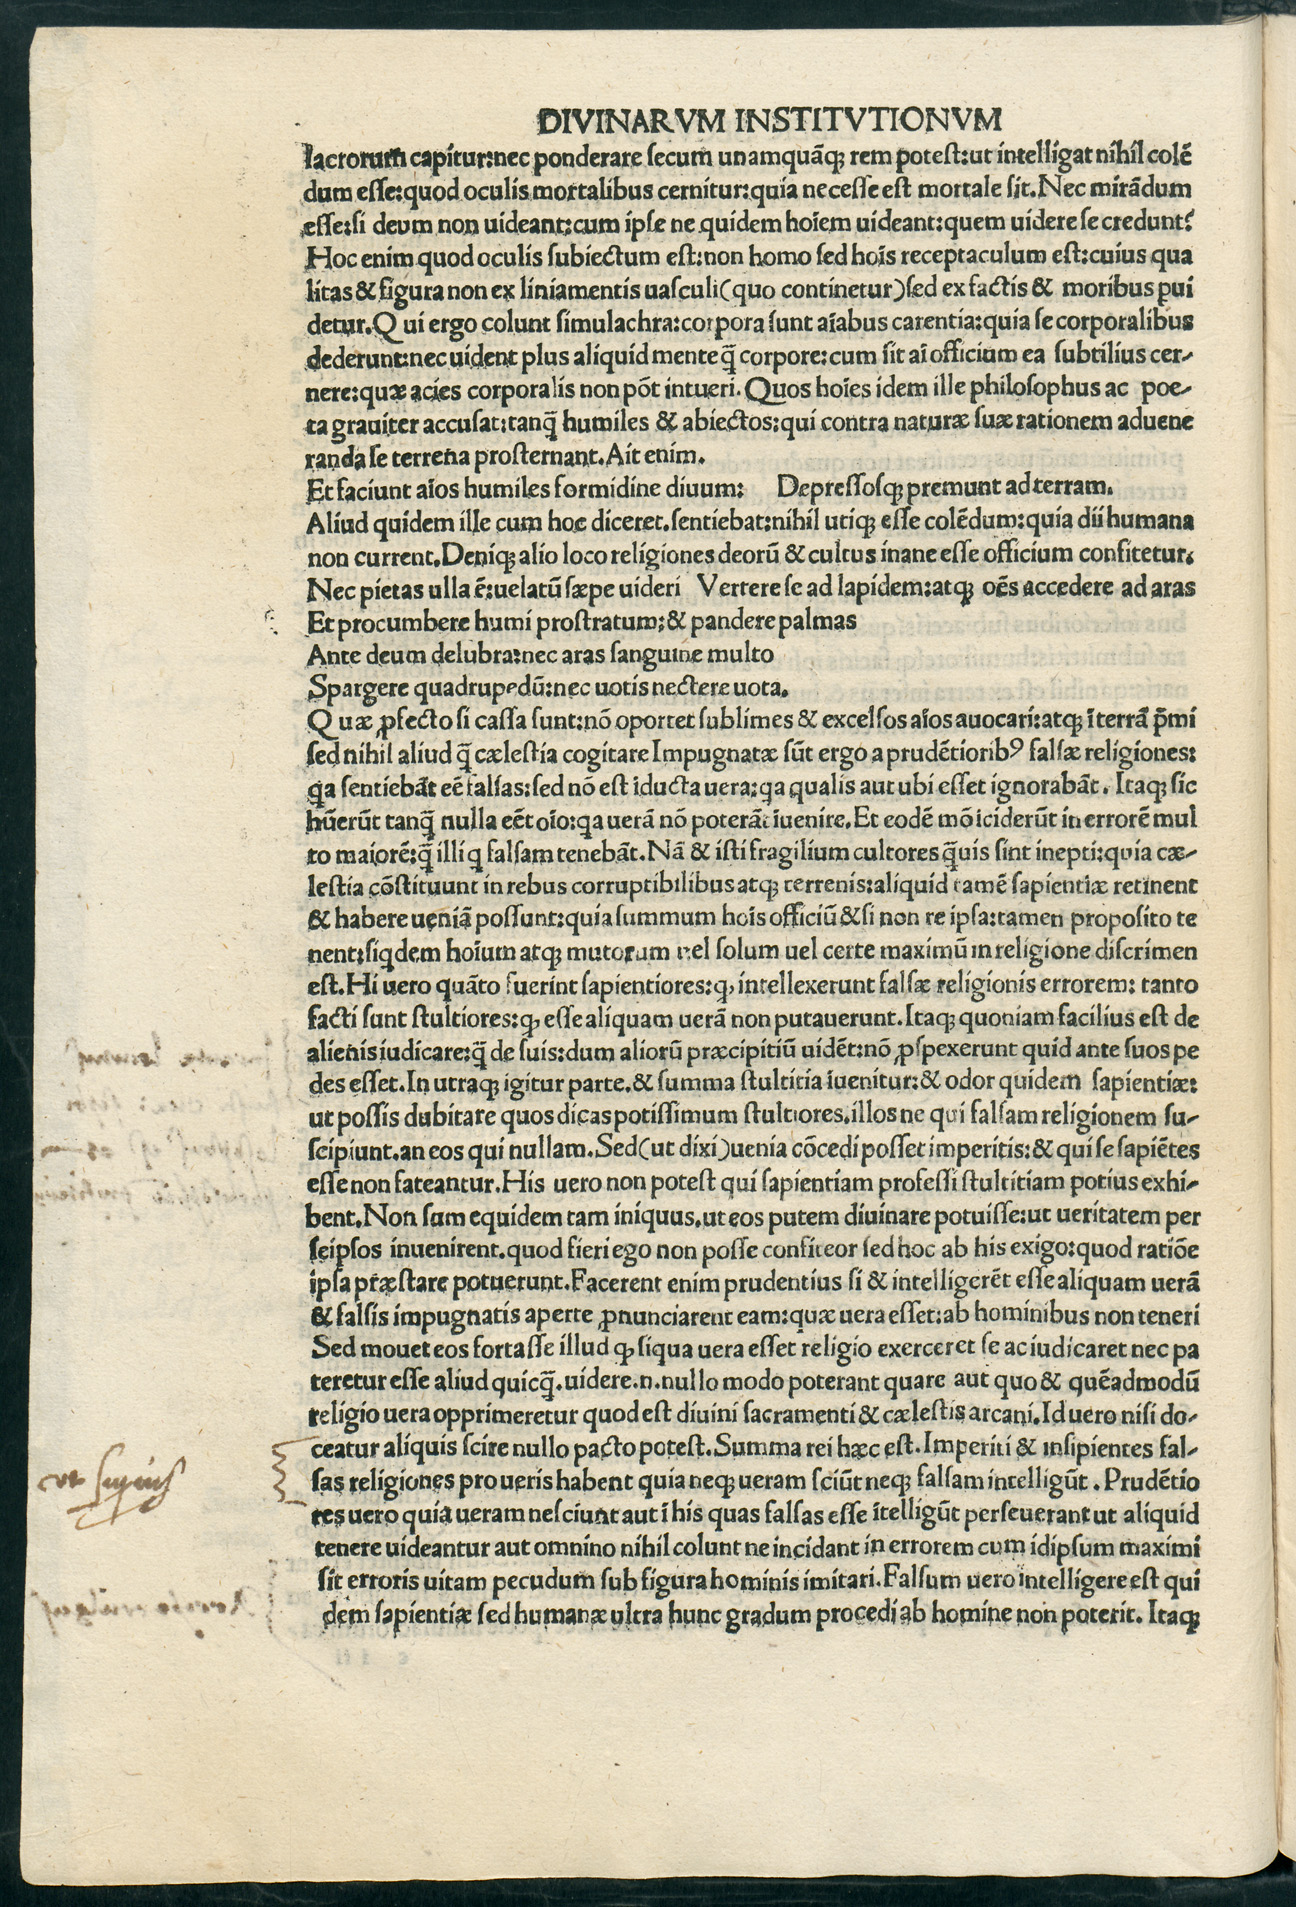 DIVINARVM INSTITVTIONVM
lactorum capitur:nec ponderare secum unamquãq; rem potest:ut intelligat nihil colẽ
dum esse:quod oculis mortalibus cernitur:quia necesse est mortale sit. Nec mirãdum
esse:si deum non uideant:cum ipse ne quidem hoĩem uideant:quem uidere se credunt?
Hoc enim quod oculis subiectum est:non homo sed hoĩs receptaculum est:cuius qua
litas & figura non ex liniamentis uasculi(quo continetur)sed ex factis & moribus ꝑui
detur. Qui ergo colunt simulachra:corpora sunt aĩabus carentia:quia se corporalibus
dederunt:nec uident plus aliquid mente q̃ corpore:cum sit aĩ officium ea subtilius cer-
nere:quæ acies corporalis non põt intueri. Quos hoĩes idem ille philosophus ac poe-
ta grauiter accusat:tanq̃ humiles & abiectos:qui contra naturæ suæ rationem aduene
randa se terrena prosternant. Ait enim.
Et faciunt aĩos humiles formidine diuum: Depressosq; premunt ad terram.
Aliud quidem ille cum hoc diceret. sentiebat:nihil utiq; esse colẽdum:quia dii humana
non current. Deniq; alio loco religiones deorũ & cultus inane esse officium confitetur.
Nec pietas ulla ẽ:uelatũ sæpe uideri Vertere se ad lapidem:atq; oẽs accedere ad aras
Et procumbere humi prostratum:& pandere palmas
Ante deum delubra:nec aras sanguine multo
Spargere quadrupedũ:nec uotis nectere uota.
Quæ ꝓfecto si cassa sunt:nõ oportet sublimes & excelsos aĩos auocari:atq; ĩ terrã p̃mi
sed nihil aliud q̃ cælestia cogitare Impugnatæ sũt ergo a prudẽtioribꝰ falsæ religiones:
qa sentiebãt eẽ falsas:sed nõ est ĩducta uera:qa qualis aut ubi esset ignorabãt. Itaq; sic
hũerũt tanq̃ nulla eẽt oĩo:qa uerã nõ poterãt ĩuenire. Et eodẽ mõ ĩciderũt in errorẽ mul
to maiorẽ:q̃ illi q falsam tenebãt. Nã & isti fragilium cultores q̃uis sint inepti:quia cæ-
lestia cõstituunt in rebus corruptibilibus atq; terrenis:aliquid tamẽ sapientiæ retinent
& habere ueniã possunt:quia summum hoĩs officiũ & si non re ipsa:tamen proposito te
nent:siqdem hoĩum atq; mutorum uel solum uel certe maximũ in religione discrimen
est. Hi uero quãto fuerint sapientiores:ꝙ intellexerunt falsæ religionis errorem: tanto
facti sunt stultiores:ꝙ esse aliquam uerã non putauerunt. Itaq; quoniam facilius est de
alienis iudicare:q̃ de suis:dum aliorũ præcipitiũ uidẽt:nõ ꝓspexerunt quid ante suos pe
des esset. In utraq; igitur parte. & summa stultitia ĩuenitur:& odor quidem sapientiæ:
ut possis dubitare quos dicas potissimum stultiores. illos ne qui falsam religionem su-
scipiunt. an eos qui nullam. Sed(ut dixi)uenia cõcedi posset imperitis:& qui se sapiẽtes
esse non fateantur. His uero non potest qui sapientiam professi stultitiam potius exhi-
bent. Non sum equidem tam iniquus. ut eos putem diuinare potuisse:ut ueritatem per
seipsos inuenirent. quod fieri ego non posse confiteor sed hoc ab his exigo:quod ratiõe
ipsa præstare potuerunt. Facerent enim prudentius si & intelligerẽt esse aliquam uerã
& falsis impugnatis aperte ꝓnunciarent eam:quæ uera esset:ab hominibus non teneri
Sed mouet eos fortasse illud ꝙ siqua uera esset religio exerceret se ac iudicaret nec pa
teretur esse aliud quicq̃. uidere. n. nullo modo poterant quare aut quo & quẽadmodũ
religio uera opprimeretur quod est diuini sacramenti & cælestis arcani. Id uero nisi do-
ceatur aliquis scire nullo pacto potest. Summa rei hæc est. Imperiti & insipientes fal-
sas religiones pro ueris habent quia neq; ueram sciũt neq; falsam intelligũt. Prudẽtio
ut supius
res uero quia ueram nesciunt aut ĩ his quas falsas esse ĩtelligũt perseuerant ut aliquid
tenere uideantur aut omnino nihil colunt ne incidant in errorem cum idipsum maximi
sit erroris uitam pecudum sub figura hominis imitari. Falsum uero intelligere est qui
dem sapientiæ sed humanæ ultra hunc gradum procedi ab homine non poterit. Itaq;